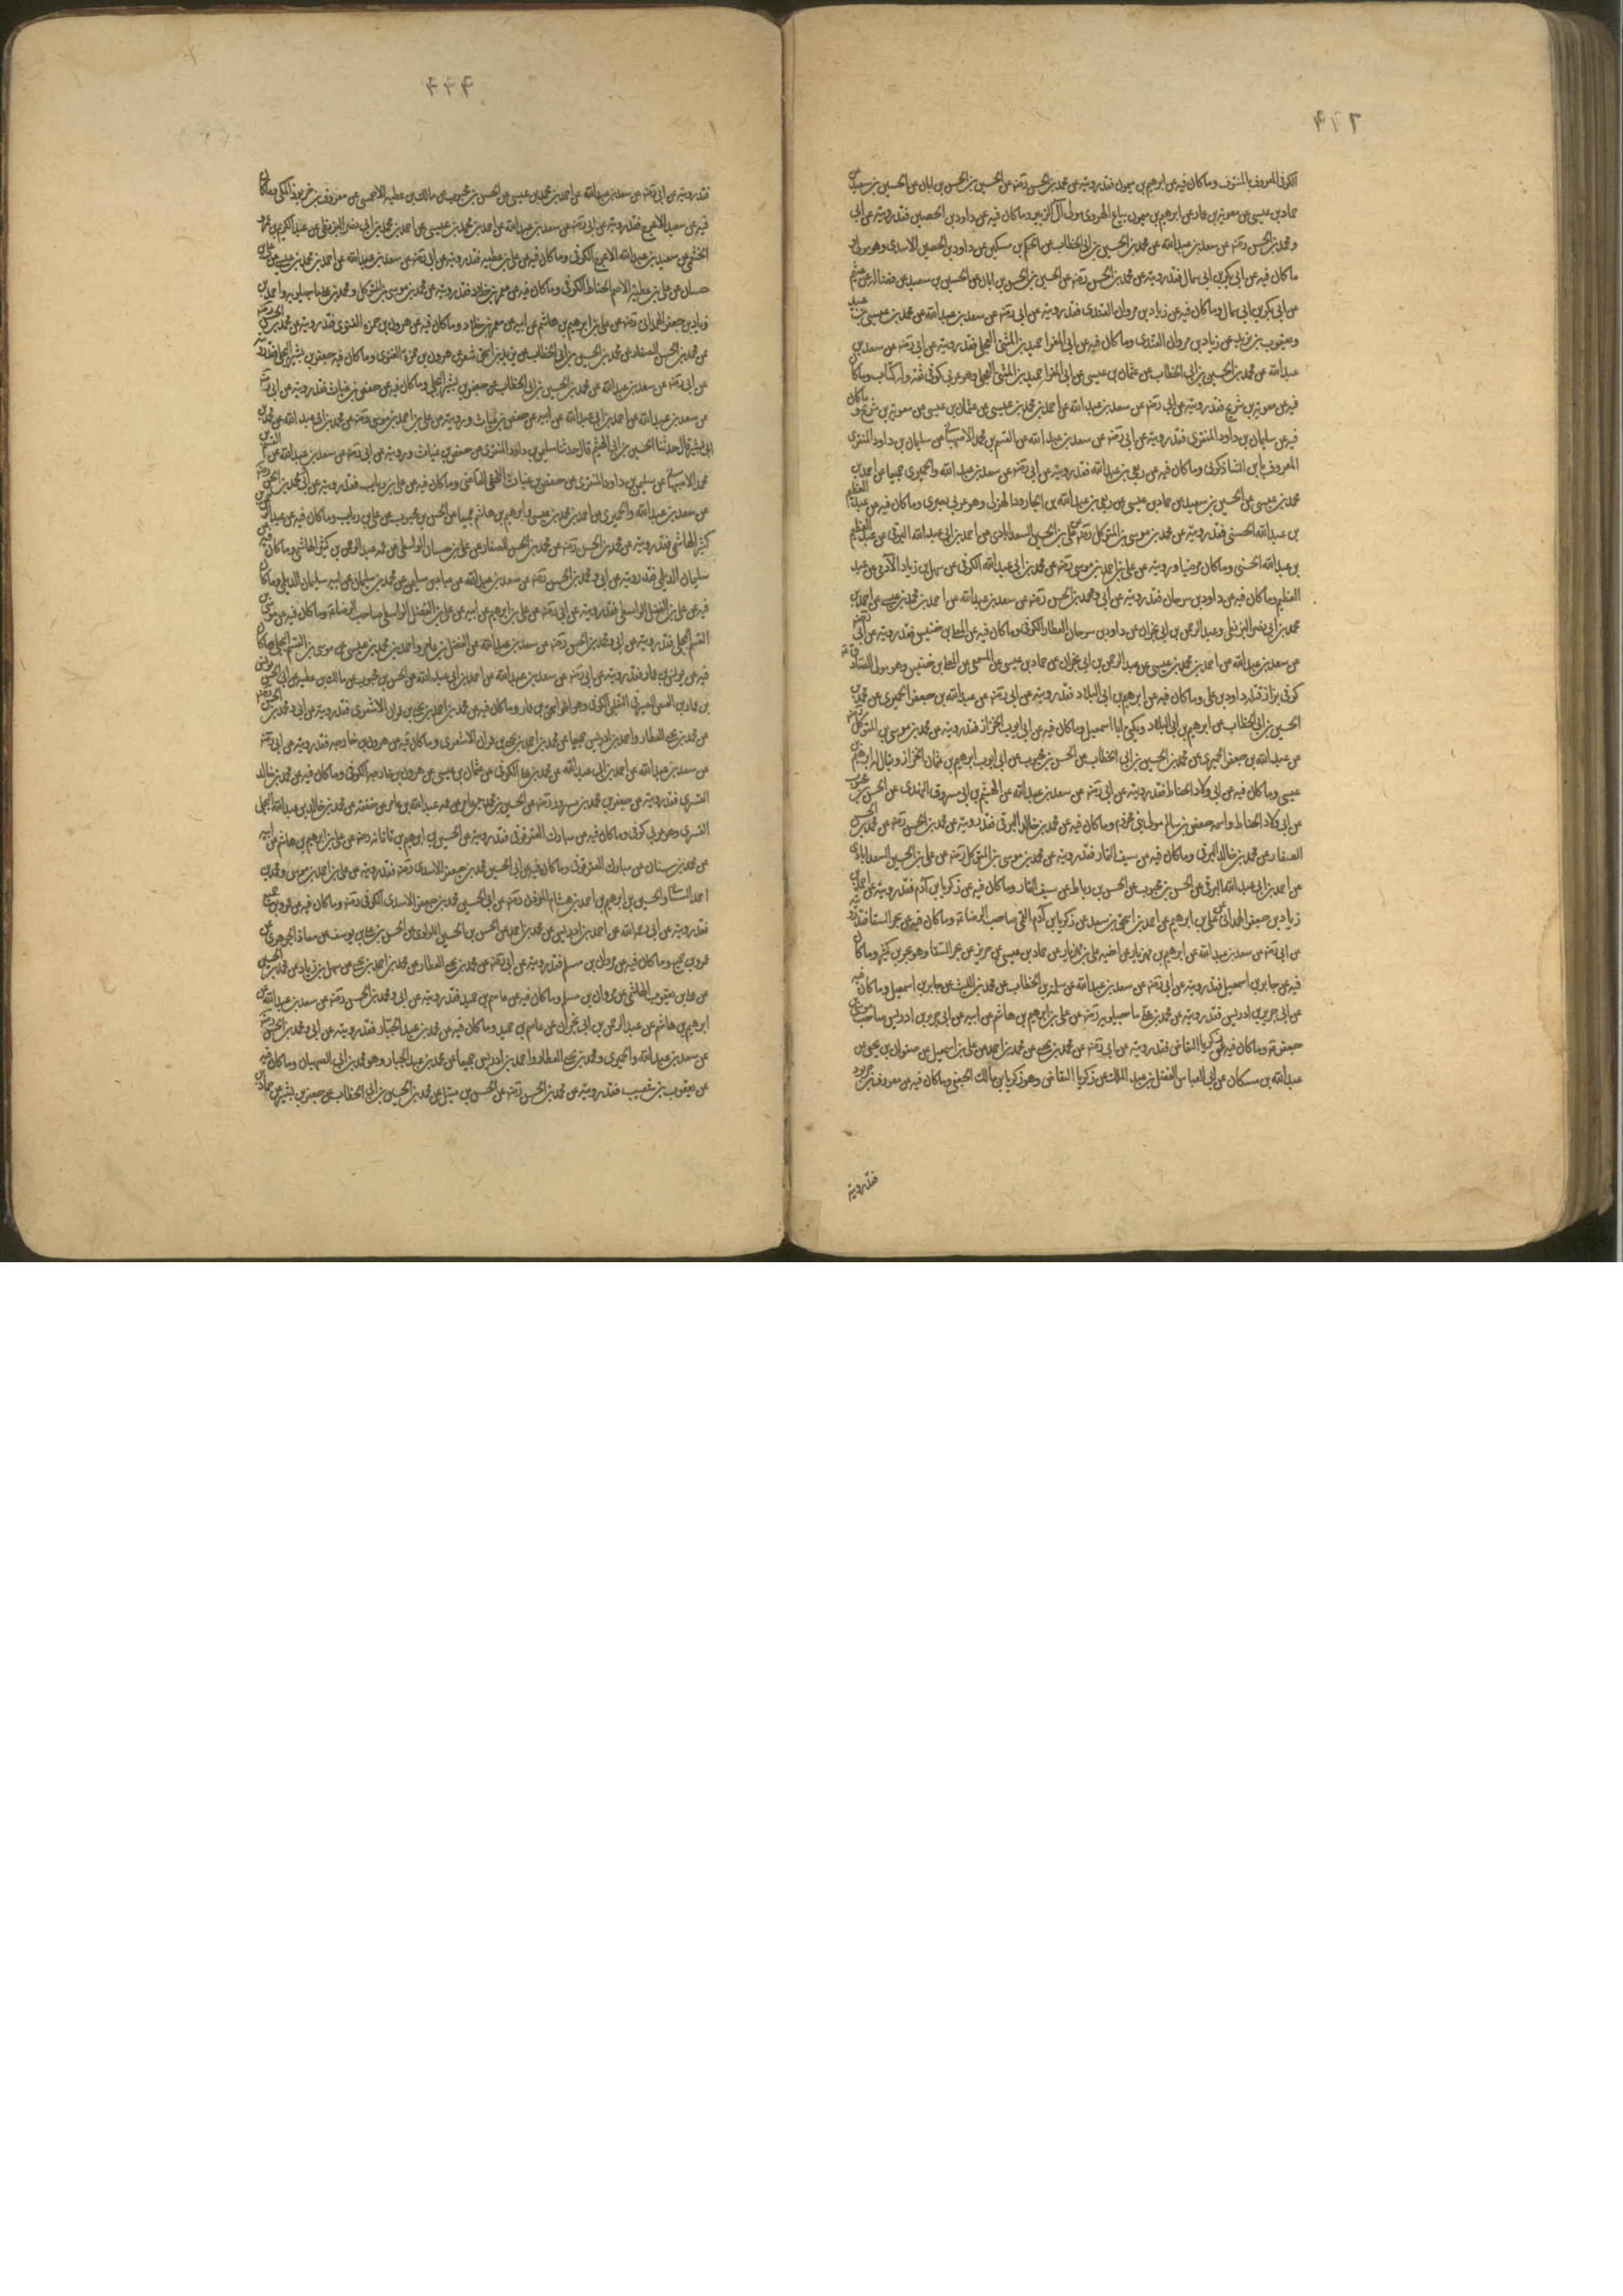 الكوفى المعروف بالمنتوف وما كان فيه عن ابرهيم بن ميمون فقد رويته عن محمد بن الحسن رضه عن الحسين بن الحسن بن ابان عن الحسين بن سعيد عن
حماد بن عيسى عن معوية بن عمار عن ابرهيم بن ميمون بياع الهروى مولى آل الزبير وما كان فيه عن داود بن الحصين فقد رويته عن ابى
و محمد بن الحسن رضه عن سعد بن عبد الله عن محمد بن الحسين بن ابى الخطاب عن الحكم بن مسكين عن داود بن الحصين الاسدى وهو مولى
ما كان فيه عن ابى بكر بن ابى سمال فقد رويته عن محمد بن الحسن رضه عن الحسين بن الحسن بن ابان عن الحسين بن سعيد عن فضالة عن
عن ابى بكر بن ابى سمال وما كان فيه عن زياد بن مروان القندى فقد رويته عن ابى رضه عن سعد بن عبد الله عن محمد بن عيسى بن عبيد
ويعقوب بن يزيد عن زياد بن مروان القندى وما كان فيه عن ابى المغرا حميد بن المثنى العجلى فقد رويته عن ابى رضه عن سعد بن
عبد الله عن محمد بن الحسين بن ابى الخطاب عن عثمان بن عيسى عن ابى المغرا حميد بن المثنى العجلى وهو عربى كوفى ثقة وله كتاب وما كان
فيه عن معوية بن شريح فقد رويته عن ابى رضه عن سعد بن عبد الله عن احمد بن محمد بن عيسى عن عثمان بن عيسى عن معوية بن شريح وما كان
فيه عن سليمان بن داود المنقرى فقد رويته عن ابى رضه عن سعد بن عبد الله عن القسم بن محمد الاصبهانى عن سليمان بن داود المنقرى
المعروف بابن الشاذكونى وما كان فيه عن ربعى بن عبد الله فقد رويته عن ابى رضه عن سعد بن عبد الله والحميرى جميعا عن احمد بن
محمد بن عيسى عن الحسين بن سعيد عن حماد بن عيسى عن ربعى بن عبد الله بن الجارود الهذلى وهو عربى بصرى وما كان فيه عن عبد العظيم
بن عبد الله الحسنى فقد رويته عن محمد بن موسى بن المتوكل رضه عن على بن الحسين السعدابادى عن احمد بن ابى عبد الله البرقى عن عبد العظيم
بن عبد الله الحسنى وكان مرضيا ورويته عن على بن احمد بن موسى رضه عن محمد بن ابى عبد الله الكوفى عن سهل بن زياد الآدمى عن عبد
العظيم وما كان فيه عن داود بن سرحان فقد رويته عن ابى ومحمد بن الحسن رضه عن سعد بن عبد الله عن احمد بن محمد بن عيسى عن احمد بن
محمد بن ابى نصر البزنطى وعبد الرحمن بن ابى نجران عن داود بن سرحان العطار الكوفى وما كان فيه عن المعلى بن خنيس فقد رويته عن ابى رضه
عن سعد بن عبد الله عن احمد بن محمد بن عيسى عن عبد الرحمن بن ابى نجران عن حماد بن عيسى عن المسمعى عن المعلى بن خنيس وهو مولى الصادق
كوفى بزاز قتله داود بن على وما كان فيه عن ابرهيم بن ابى البلاد فقد رويته عن ابى رضه عن عبد الله بن جعفر الحميرى عن محمد بن
الحسين بن ابى الخطاب عن ابرهيم بن ابى البلاد ويكنى ابا اسمعيل وما كان فيه عن ابى ايوب الخزاز فقد رويته عن محمد بن موسى بن المتوكل رضه
عن عبد الله بن جعفر الحميرى عن محمد بن الحسين بن ابى الخطاب عن الحسن بن محبوب عن ابى ايوب ابرهيم بن عثمان الخزاز ويقال له ابرهيم بن
عيسى وما كان فيه عن ابى ولاد الحناط فقد رويته عن ابى رضه عن سعد بن عبد الله عن الهيثم بن ابى مسروق النهدى عن الحسن بن محبوب
عن ابى ولاد الحناط واسمه حفص بن سالم مولى بنى مخزوم وما كان فيه عن محمد بن خالد البرقى فقد رويته عن محمد بن الحسن رضه عن محمد بن الحسن
الصفار عن محمد بن خالد البرقى وما كان فيه عن سيف التمار فقد رويته عن محمد بن موسى بن المتوكل رضه عن على بن الحسين السعدابادى
عن احمد بن ابى عبد الله البرقى عن الحسن بن محبوب عن الحسن بن رباط عن سيف التمار وما كان فيه عن زكريا بن آدم فقد رويته عن احمد بن
زياد بن جعفر الهمدانى عن على بن ابرهيم عن احمد بن اسحق بن سعد عن زكريا بن آدم القمى صاحب الرضا ع وما كان فيه عن بحر السقا فقد رويته
عن ابى رضه عن سعد بن عبد الله عن ابرهيم بن مهزيار عن اخيه على بن مهزيار عن حماد بن عيسى عن حريز عن بحر السقا وهو بحر بن كثير وما كان
فيه عن جابر بن اسمعيل فقد رويته عن ابى رضه عن سعد بن عبد الله عن سلمة بن الخطاب عن محمد بن الليث عن جابر بن اسمعيل وما كان فيه
عن ابى جرير بن ادريس فقد رويته عن محمد بن على ماجيلويه رضه عن على بن ابرهيم بن هاشم عن ابيه عن ابى جرير بن ادريس صاحب موسى بن
جعفر ع وما كان فيه عن زكريا النقاض فقد رويته عن ابى رضه عن محمد بن يحيى عن محمد بن احمد عن على بن اسمعيل عن صفوان بن يحيى عن
عبد الله بن مسكان عن ابى العباس الفضل بن عبد الملك عن زكريا النقاض وهو زكريا بن مالك الجعفى وما كان فيه عن معروف بن خربوذ
فقد رويته
فقد رويته عن ابى رضه عن سعد بن عبد الله عن احمد بن محمد بن عيسى عن الحسن بن محبوب عن مالك بن عطية الاحمسى عن معروف بن خربوذ المكى وما كان
فيه عن سعيد الاعرج فقد رويته عن ابى رضه عن سعد بن عبد الله عن احمد بن محمد بن عيسى عن احمد بن محمد بن ابى نصر البزنطى عن عبد الكريم بن عمرو
الخثعمى عن سعيد بن عبد الله الاعرج الكوفى وما كان فيه عن على بن عطية فقد رويته عن ابى رضه عن سعد بن عبد الله عن احمد بن محمد بن عيسى عن على بن
حسان عن على بن عطية الاصم الحناط الكوفى وما كان فيه عن معمر بن خلاد فقد رويته عن محمد بن موسى بن المتوكل ومحمد بن على ماجيلويه واحمد بن
زياد بن جعفر الهمدانى رضه عن على بن ابرهيم بن هاشم عن ابيه عن معمر بن خلاد وما كان فيه عن هرون بن حمزة الغنوى فقد رويته عن محمد بن الحسن رضه
عن محمد بن الحسن الصفار عن محمد بن الحسين بن ابى الخطاب عن يزيد بن اسحق شعر عن هرون بن حمزة الغنوى وما كان فيه جعفر بن بشير البجلى فقد رويته
عن ابى رضه عن سعد بن عبد الله عن محمد بن الحسين بن ابى الخطاب عن جعفر بن بشير البجلى وما كان فيه عن حفص بن غياث فقد رويته عن ابى رضه
عن سعد بن عبد الله عن احمد بن ابى عبد الله عن ابيه عن حفص بن غياث ورويته عن على بن احمد بن موسى رضه عن محمد بن ابى عبد الله عن محمد بن
ابى بشير قال حدثنا الحسين بن ابى الهيثم قال حدثنا سليمن بن داود المنقرى عن حفص بن غياث ورويته عن ابى رضه عن سعد بن عبد الله عن القسم بن
محمد الاصبهانى عن سليمن بن داود المنقرى عن حفص بن غياث النخعى القاضى وما كان فيه عن على بن رياب فقد رويته عن ابى ومحمد بن الحسن رضه
عن سعد بن عبد الله والحميرى عن احمد بن محمد بن عيسى وابرهيم بن هاشم جميعا عن الحسن بن محبوب عن على بن رياب وما كان فيه عن عبد الرحمن بن
كثير الهاشمى فقد رويته عن محمد بن الحسن رضه عن محمد بن الحسن الصفار عن على بن حسان الواسطى عن عمه عبد الرحمن بن كثير الهاشمى وما كان فيه عن
سليمان الديلمى فقد رويته عن ابى ومحمد بن الحسن رضه عن سعد بن عبد الله عن عباد بن سليمن عن محمد بن سليمان عن ابيه سليمان الديلمى وما كان
فيه عن على بن الفضل الواسطى فقد رويته عن ابى رضه عن على بن ابرهيم عن ابيه عن على بن الفضل الواسطى صاحب الرضا ع وما كان فيه عن موسى بن
القسم البجلى فقد رويته عن ابى ومحمد بن الحسن رضه عن سعد بن عبد الله عن الفضل بن عامر واحمد بن محمد بن عيسى عن موسى بن القسم البجلى وما كان
فيه عن يونس بن عمار فقد رويته عن ابى رضه عن سعد بن عبد الله عن احمد بن ابى عبد الله عن الحسن بن محبوب عن مالك بن عطية عن ابى الحسن يونس
بن عمار بن الفيض الصيرفى التغلبى الكوفى وهو اخو اسحق بن عمار وما كان فيه عن محمد بن احمد بن يحيى بن عمران الاشعرى فقد رويته عن ابى ومحمد بن الحسن رضه
عن محمد بن يحيى العطار واحمد بن ادريس جميعا عن محمد بن احمد بن يحيى بن عمران الاشعرى وما كان فيه عن هرون بن خارجه فقد رويته عن ابى رضه
عن سعد بن عبد الله عن احمد بن ابى عبد الله عن محمد بن على الكوفى عن عثمان بن عيسى عن هرون بن خارجه الكوفى وما كان فيه عن محمد بن خالد
القسرى فقد رويته عن جعفر بن محمد بن مسرور رضه عن الحسين بن محمد بن عامر عن عمه عبد الله بن عامر عن حفصة عن محمد بن خالد بن عبد الله البجلى
القسرى وهو عربى كوفى وما كان فيه عن مبارك العقرقوفى فقد رويته عن الحسين بن ابرهيم بن تاتانه رضه عن على بن ابرهيم بن هاشم عن ابيه
عن محمد بن سنان عن مبارك العقرقوفى وما كان فيه عن ابى الحسين محمد بن جعفر الاسدى رضه فقد رويته عن على بن احمد بن موسى ومحمد بن
احمد السنانى والحسين بن ابرهيم بن احمد بن هشام المؤدب رضه عن ابى الحسين محمد بن جعفر الاسدى الكوفى رضه وما كان فيه عن عمرو بن جميع
فقد رويته عن ابى رحمه الله عن احمد بن ادريس عن محمد بن احمد عن الحسن بن الحسين اللؤلؤى عن الحسن بن على بن يوسف عن معاذ الجوهرى عن
عمرو بن جميع وما كان فيه عن مروان بن مسلم فقد رويته عن ابى رضه عن محمد بن يحيى العطار عن محمد بن احمد بن يحيى عن سهل بن زياد عن محمد بن الحسين
عن على بن يعقوب الهاشمى عن مروان بن مسلم وما كان فيه عن عاصم بن حميد فقد رويته عن ابى ومحمد بن الحسن رضه عن سعد بن عبد الله عن
ابرهيم بن هاشم عن عبد الرحمن بن ابى نجران عن عاصم بن حميد وما كان فيه عن محمد بن عبد الجبار فقد رويته عن ابى ومحمد بن الحسن رضه
عن سعد بن عبد الله والحميرى ومحمد بن يحيى العطار واحمد بن ادريس جميعا عن محمد بن عبد الجبار وهو محمد بن ابى الصهبان وما كان فيه
عن يعقوب بن شعيب فقد رويته عن محمد بن الحسن رضه عن الحسن بن متيل عن محمد بن الحسين بن ابى الخطاب عن جعفر بن بشير عن حماد بن